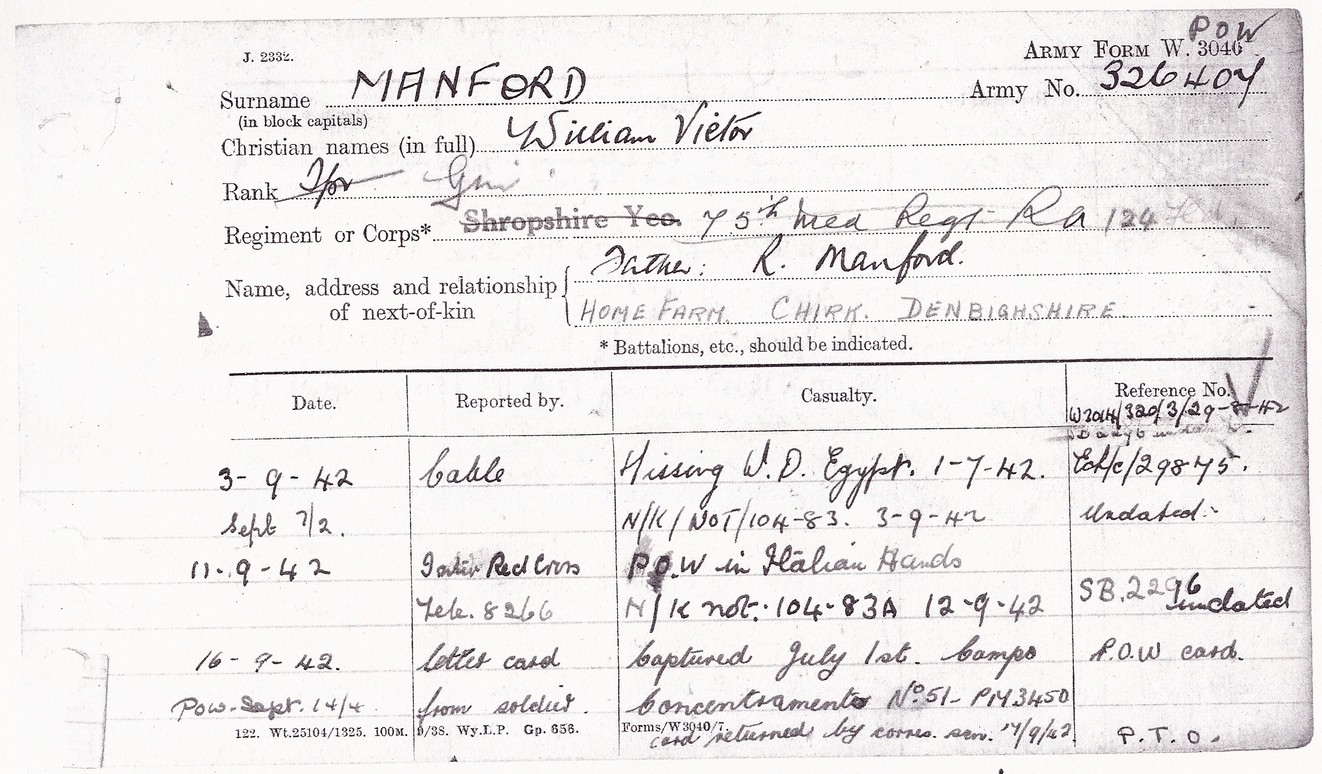 POW
J. 2332. ARMY FORM W. 3040
Surname MANFORD Army No. 326407
(in block capitals)
Christian names (in full) William Victor
Rank Tpr Gnr
Regiment or Corps* Shropshire Yeo. 75th Med Regt RA 124
Father: R. Manford.
Name, address and relationship of next-of-kin
HOME FARM CHIRK. DENBIGHSHIRE.
* Battalions, etc., should be indicated.
Date. Reported by. Casualty. Reference No.
3-9-42 Cable Missing W.D. Egypt. 1-7-42. /29875.
Sept 7/2. N/K/NOT/104-83. 3-9-42 Undated.
11-9-42 Inter Red Cross P.O.W in Italian Hands
Tele. 8266 N/K not: 104-83A 12-9-42 SB.2296 undated
16-9-42. letter card Captured July 1st. Campo P.O.W card.
POW-Sept. 14/4 from soldier. Concentramento No 51- PM3450
card returned by corres. sen. 17/9/42 P.T.O.
122. Wt.25104/1325. 100M. 9/38. Wy.L.P. Gp. 656. Forms/W3040/7.